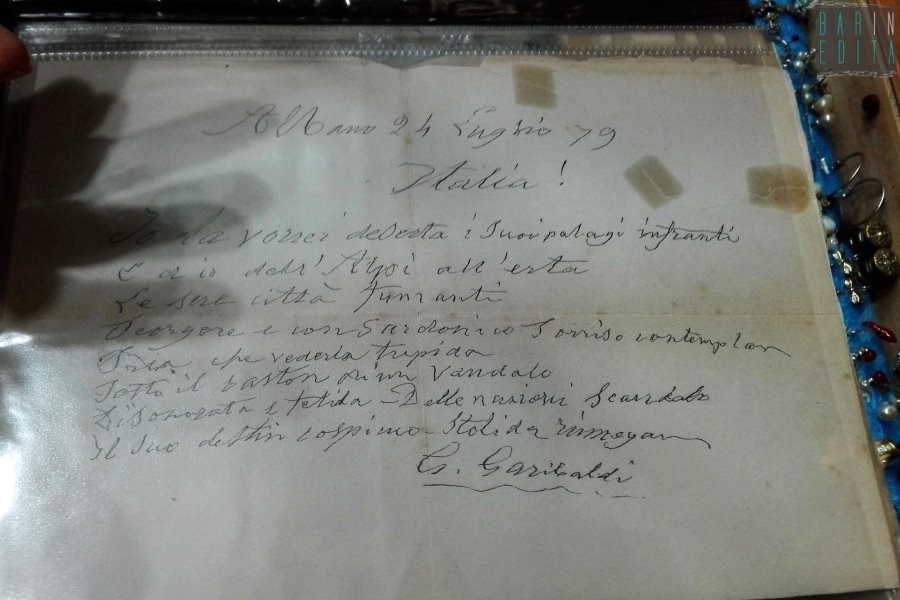 BARIN
EDITA
Albano 24 Luglio 79
Italia!
Io la vorrei deserta i Suoi palagi infranti
E da io dell'Alpi all'erta
Le sue città fumanti
Scorgere e con Sardonico Sorriso contemplar
Pria che vederla trepida
Sotto il baston di un Vandalo
Disonorata e fetida Delle nazioni Scandalo
Il Suo destin cospicuo Stolida rinnegar
G. Garibaldi